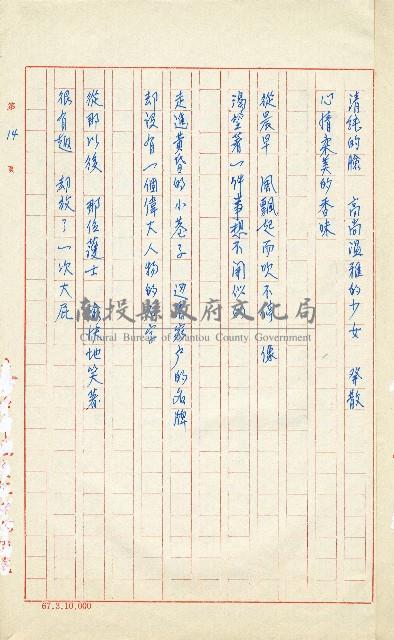 清純的臉 高尚溫雅的少女 發散
心情柔美的香味
從晨早 風飄起而吹不 像
渴望著一件事想不開似
走進黃昏的小巷子 家戶的名牌
却沒有一個偉大人物的
從那以後 那位護士 地笑著
很有趣 却放了一次大屁
第 14 頁
南投縣政府文化局
Cultural Bureau of Nantou County Government
67.3.10,000